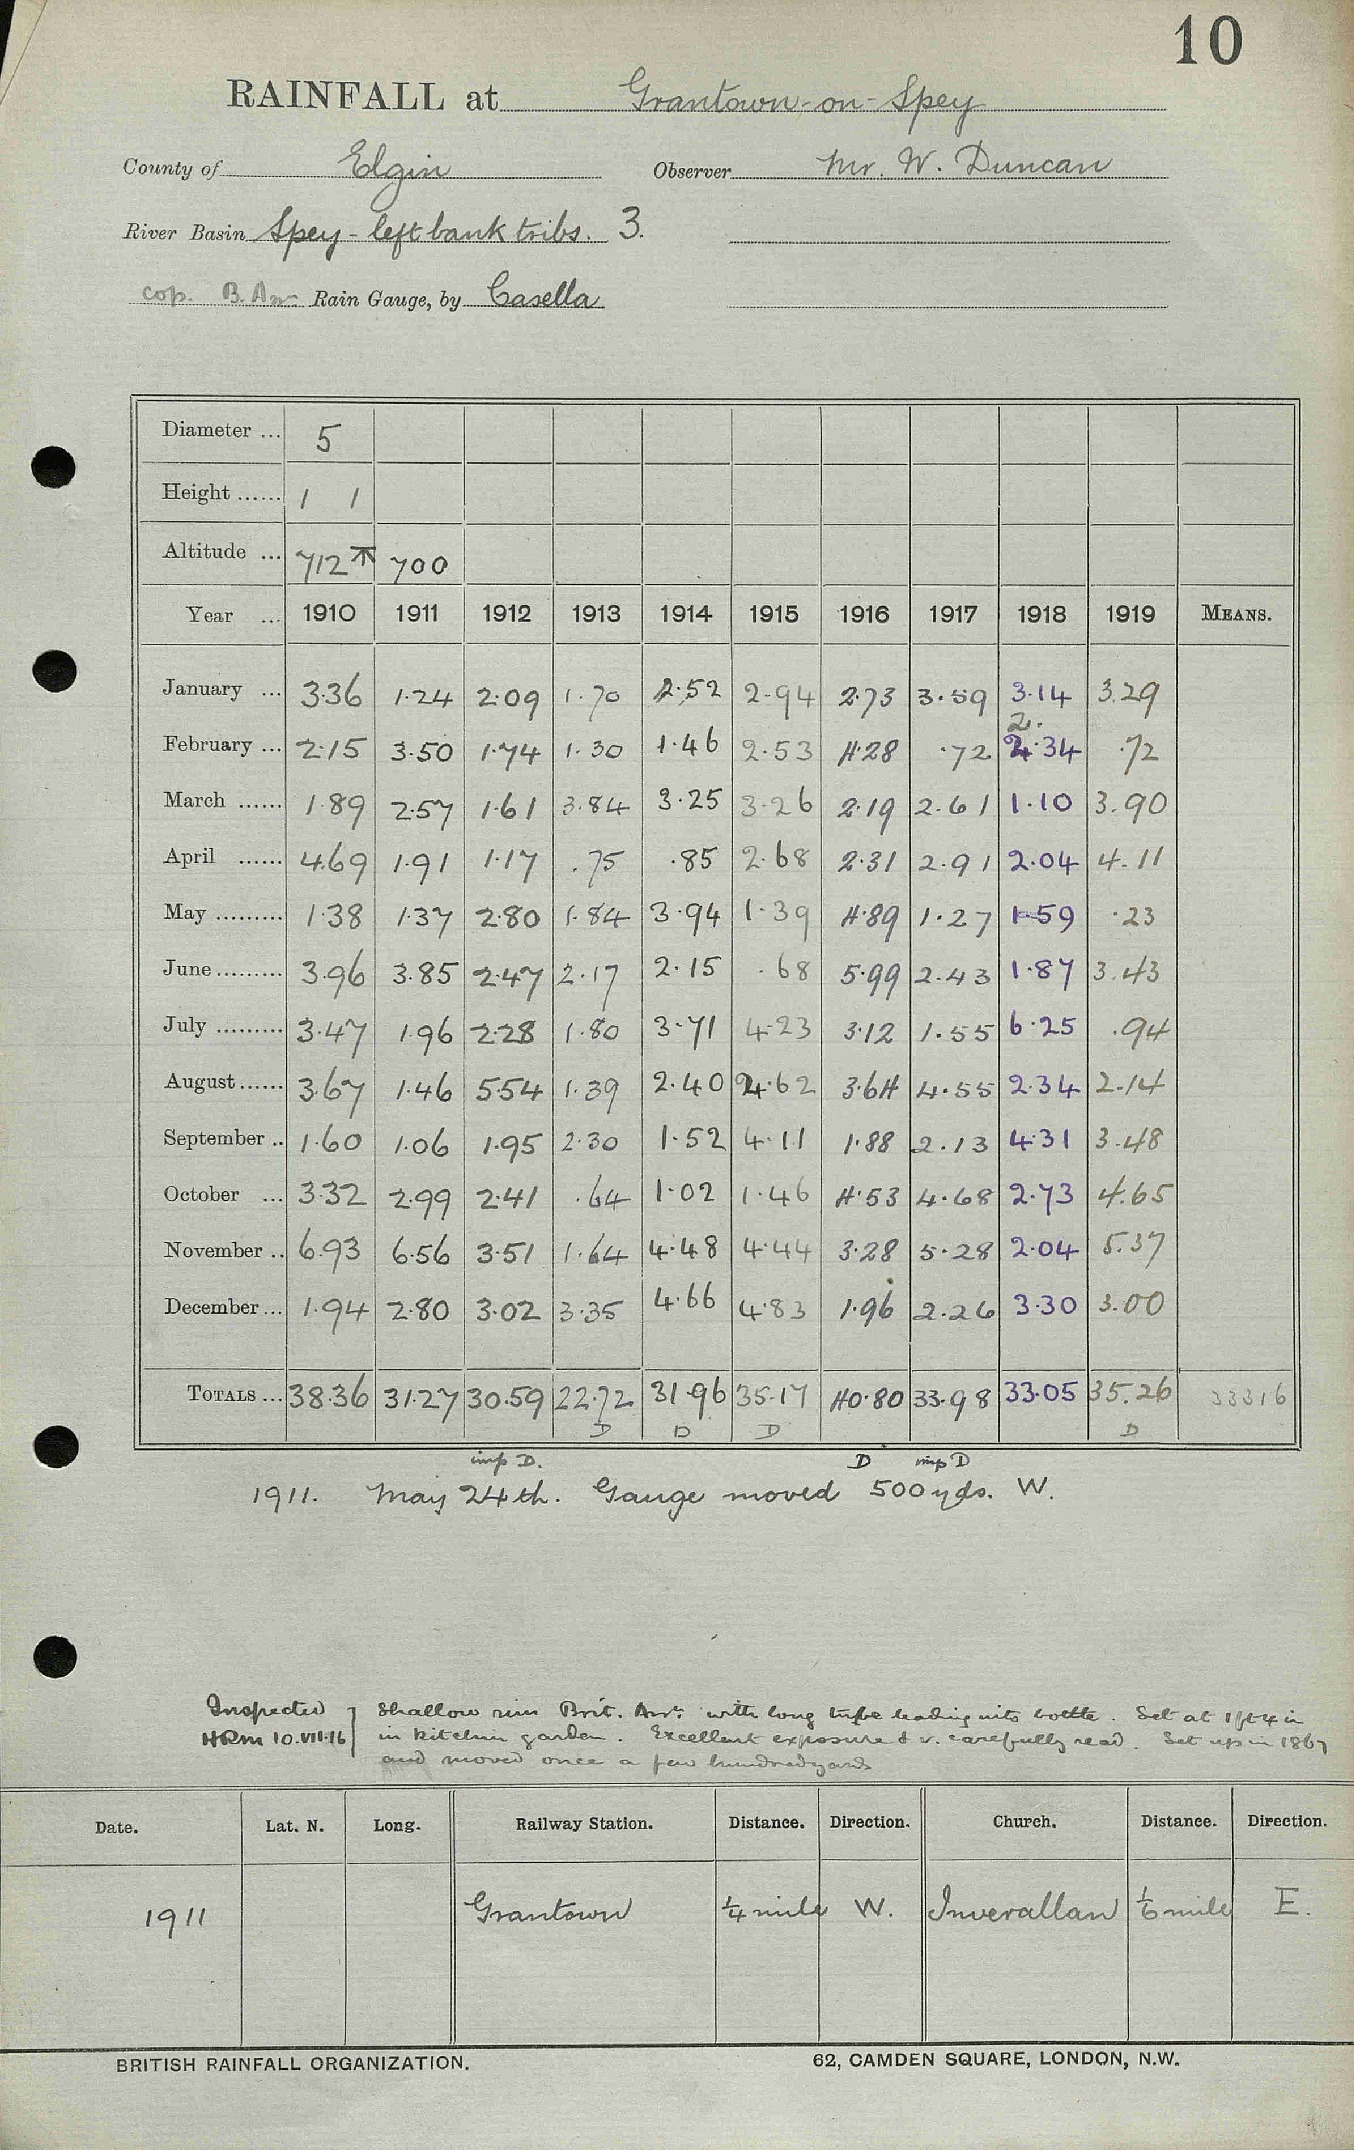 10
RAINFALL at Grantown-on-Spey
County of Elgin Observer Mr. W. Duncan
River Basin Spey - left bank tribs. 3.
cop. B. Arn Rain Gauge, by Casella
Diameter ... 5
Height ...... 1 1
Altitude ... 712 700
Year ... 1910 1911 1912 1913 1914 1915 1916 1917 1918 1919 MEANS.
January ... 3.36 1.24 2.09 1.70 2.52 2.94 2.73 3.59 3.14 3.29
2.
February ... 2.15 3.50 1.74 1.30 1.46 2.53 4.28 .72 2.34 .72
March ...... 1.89 2.57 1.61 3.84 3.25 3.26 2.19 2.61 1.10 3.90
April ...... 4.69 1.91 1.17 .75 .85 2.68 2.31 2.91 2.04 4.11
May ......... 1.38 1.37 2.80 1.84 3.94 1.39 4.89 1.27 1.59 .23
June ......... 3.96 3.85 2.47 2.17 2.15 .68 5.99 2.43 1.87 3.43
July ......... 3.47 1.96 2.28 1.80 3.71 4.23 3.12 1.55 6.25 .94
August ...... 3.67 1.46 5.54 1.39 2.40 2.62 3.64 4.55 2.34 2.14
September .. 1.60 1.06 1.95 2.30 1.52 4.11 1.88 2.13 4.31 3.48
October ... 3.32 2.99 2.41 .64 1.02 1.46 4.53 4.68 2.73 4.65
November .. 6.93 6.56 3.51 1.64 4.48 4.44 3.28 5.28 2.04 5.37
December ... 1.94 2.80 3.02 3.35 4.66 4.83 1.96 2.26 3.30 3.00
TOTALS ... 38.36 31.27 30.59 22.72 31.96 35.17 40.80 33.98 33.05 35.26 33316
D D D D
imp D. D imp D
1911. May 24th. Gauge moved 500 yds. W.
Inspected } Shallow rim Brit. Arn. with long tube leading into bottle. Set at 1 ft 4 in
HRM 10.VII.16 in kitchen garden. Excellent exposure & v. carefully read. Set up in 1867
and moved once a few hundred yards
Date. Lat. N. Long. Railway Station. Distance. Direction. Church. Distance. Direction.
1911 Grantown 1/4 mile W. Inverallan 1/6 mile E.
BRITISH RAINFALL ORGANIZATION. 62, CAMDEN SQUARE, LONDON, N.W.